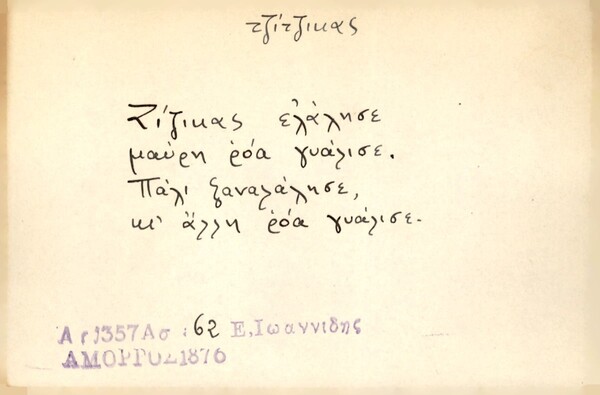 τζίτζικας
Ζίζικας ελάλησε
μαύρη ῥόα γυάλισε.
Πάλι ξαναλάλησε,
κι' ἄλλη ῥόα γυάλισε.
Αρ 1357 Ασ : 62 Ε, Ιωαννιδης
ΑΜΟΡΓΟΣ 1876